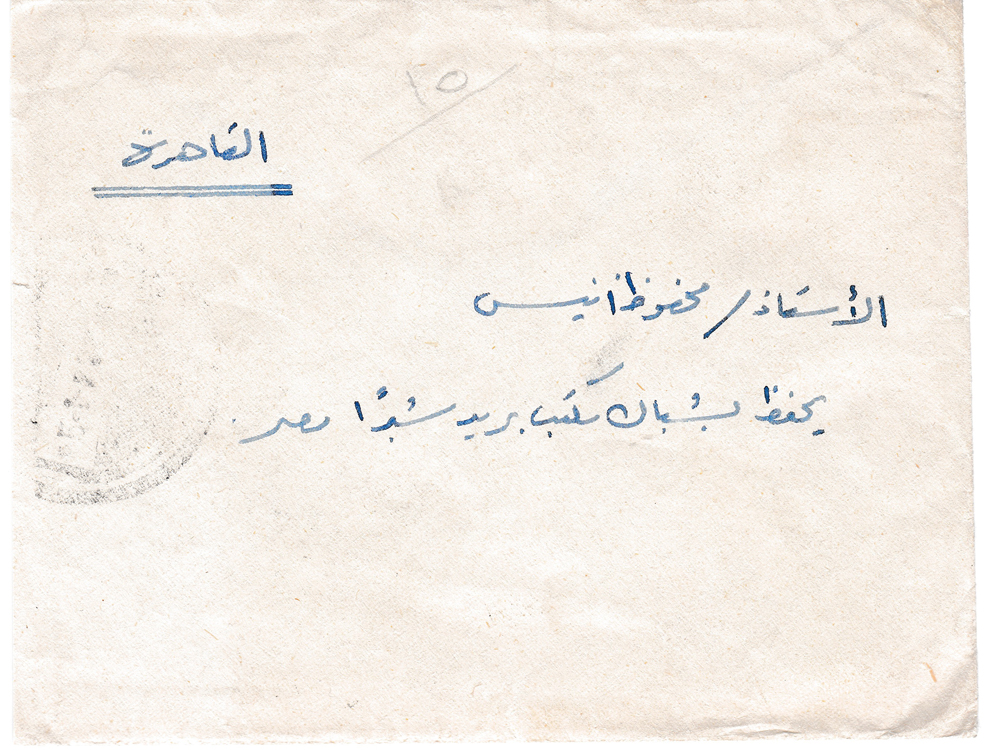 ١٥
القاهرة
الأستاذ / محفوظ انيس
يحفظ بشباك مكتب بريد شبرا مصر